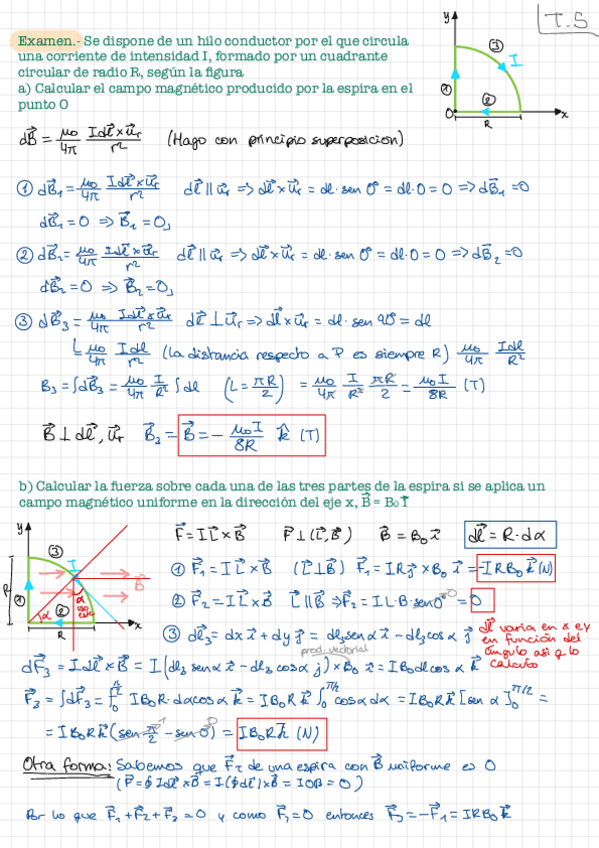 T.5
Examen.- Se dispone de un hilo conductor por el que circula
una corriente de intensidad I, formado por un cuadrante
circular de radio R, según la figura
a) Calcular el campo magnético producido por la espira en el
punto O
y ③ I ① ② O R x
dB⃗ = μ₀/4π Idl⃗×u⃗r/r² (Hago con principio superposicion)
① dB⃗₁ = μ₀/4π Idl⃗×u⃗r/r² dl⃗ || u⃗r => dl⃗×u⃗r = dl·sen 0° = dl·0 = 0 => dB⃗₁ = 0
dB⃗₁ = 0 => B⃗₁ = 0,
② dB⃗₂ = μ₀/4π Idl⃗×u⃗r/r² dl⃗ || u⃗r => dl⃗×u⃗r = dl·sen 0° = dl·0 = 0 => dB⃗₂ = 0
dB⃗₂ = 0 => B⃗₂ = 0,
③ dB⃗₃ = μ₀/4π Idl⃗×u⃗r/r² dl⃗ ⊥ u⃗r => dl⃗×u⃗r = dl·sen 90° = dl
μ₀/4π Idl/r² (La distancia respecto a P es siempre R) μ₀/4π Idl/R²
B₃ = ∫dB₃ = μ₀/4π I/R² ∫dl (L = πR/2) = μ₀/4π I/R² πR/2 = μ₀I/8R (T)
B⃗ ⊥ dl⃗, u⃗r B⃗₃ = B⃗ = - μ₀I/8R k̂ (T)
b) Calcular la fuerza sobre cada una de las tres partes de la espira si se aplica un
campo magnético uniforme en la dirección del eje x, B⃗ = B₀ i⃗
y ③ I B⃗ R ① ② α α R x
F⃗ = I L⃗×B⃗ F⃗ ⊥ (L⃗, B⃗) B⃗ = B₀ i⃗ dl⃗ = R·dα
① F⃗₁ = I L⃗×B⃗ (L⃗⊥B⃗) F⃗₁ = IR j⃗ × B₀ i⃗ = -IRB₀ k⃗ (N)
② F⃗₂ = I L⃗×B⃗ L⃗ || B⃗ => F⃗₂ = I L·B·sen 0° = 0
③ dl⃗₃ = dx i⃗ + dy j⃗ = dl₃ sen α i⃗ - dl₃ cos α j⃗
dl⃗ varia en x e y
en función del
ángulo asi q lo
calculo
prod. vectorial
dF⃗₃ = I dl⃗×B⃗ = I (dl₃ sen α i⃗ - dl₃ cos α j⃗) × B₀ i⃗ = IB₀ dl cos α k⃗
F⃗₃ = ∫dF⃗₃ = ∫₀^π/2 IB₀R·dα cos α k⃗ = IB₀R k⃗ ∫₀^π/2 cos α dα = IB₀R k⃗ [sen α]₀^π/2 =
= IB₀R k⃗ (sen π/2 - sen 0) = IB₀R k⃗ (N)
Otra forma: Sabemos que F⃗T de una espira con B⃗ uniforme es 0
(F⃗ = ∮ I dl⃗×B⃗ = I(∮dl⃗)×B⃗ = I0B = 0)
Por lo que F⃗₁ + F⃗₂ + F⃗₃ = 0 y como F⃗₂ = 0 entonces F⃗₃ = -F⃗₁ = IRB₀ k⃗